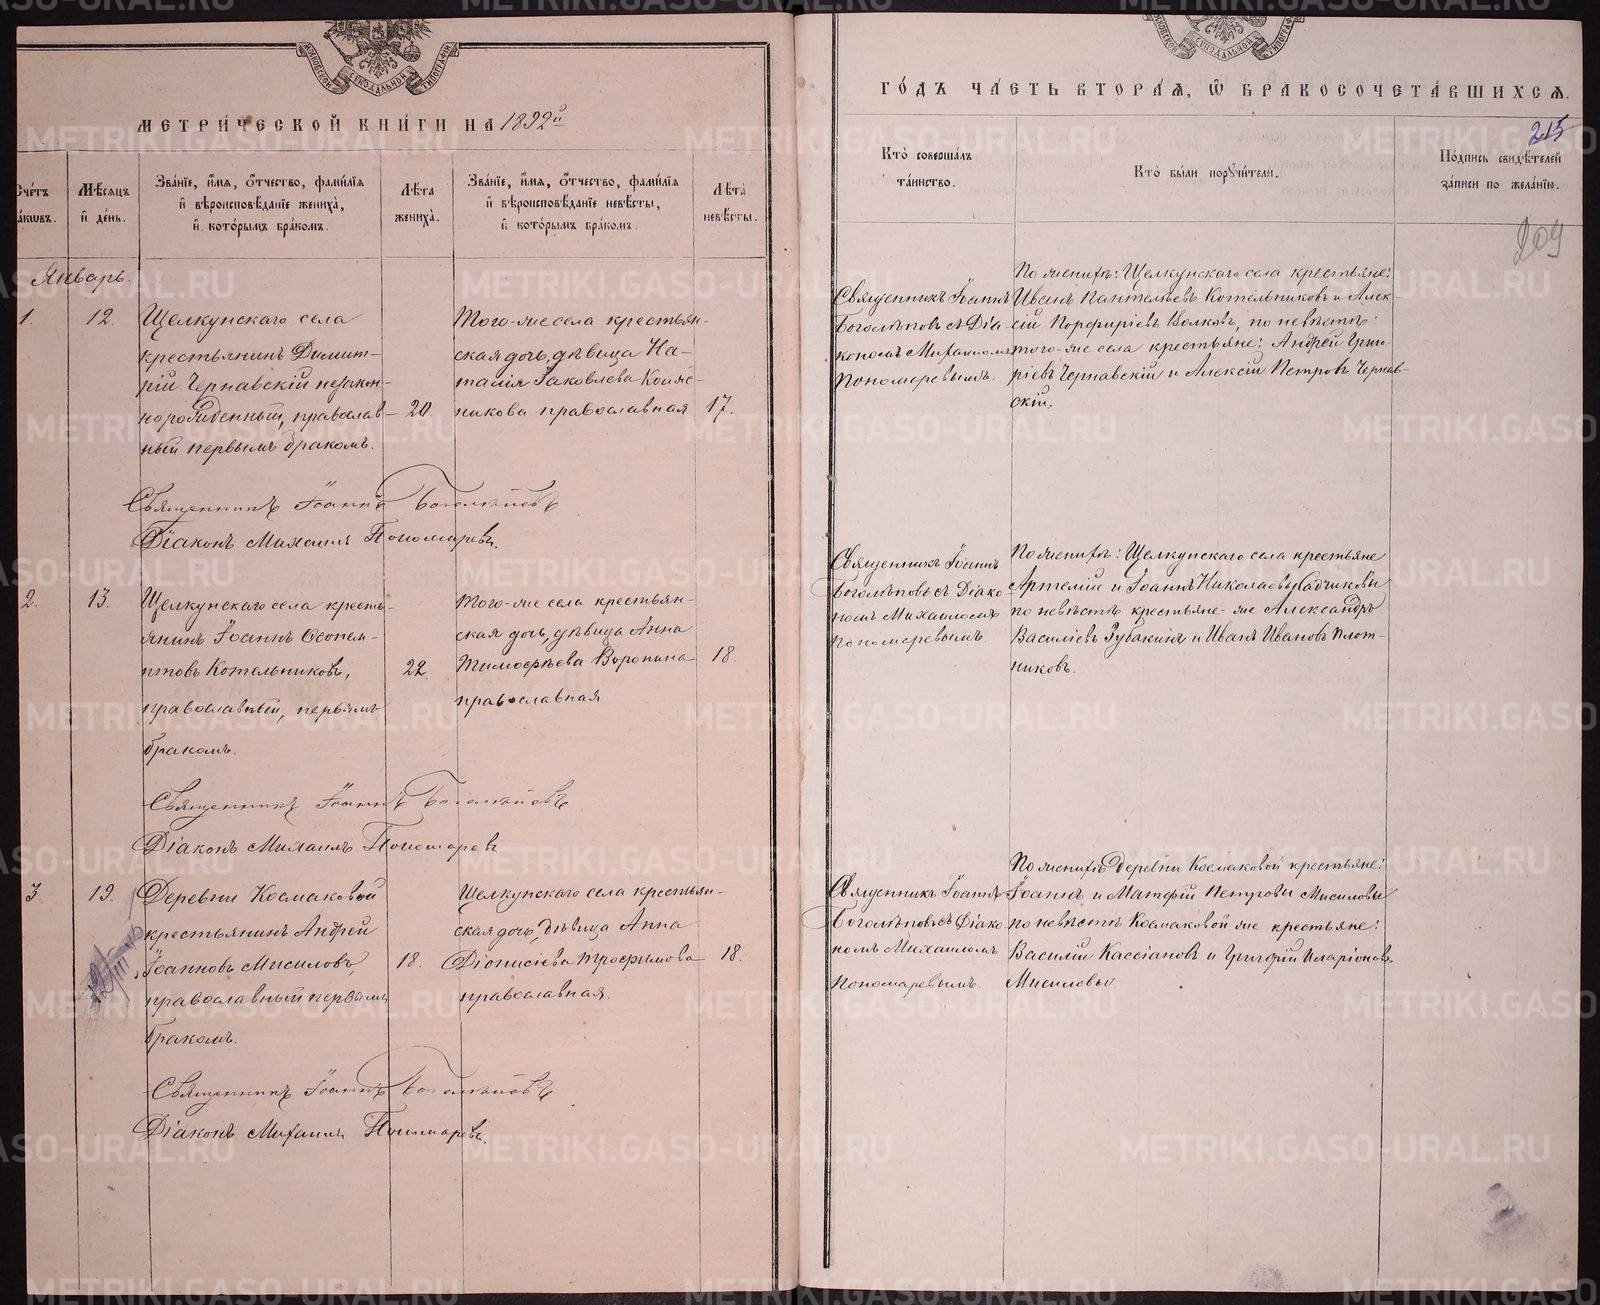 МОСКОВСКОЙ СѶНОДАЛЬНОЙ ТИПОГРАФІИ
МЕТРИ́ЧЕСКОЙ КНИ́ГИ НА 1892й
Счéтъ
бракѡвъ.
Мѣсяцъ
и҆ дéнь.
Звáніе, и҆́мѧ, ѻ҆́тчество, фамѝлїѧ
и҆ вѣроисповѣ́данїе женихà,
и҆ котóрымъ брáкомъ.
Лѣ́та
женихà.
Звáніе, и҆́мѧ, ѻ҆́тчество, фамѝлїѧ
и҆ вѣроисповѣ́данїе невѣ́сты,
и҆ котóрымъ брáкомъ.
Лѣ́та
невѣ́сты.
Январь.
1.
12.
Щелкунскаго села
крестьянинъ Димит-
рій Чернавскій незакон-
норожденный, православ-
ный первымъ бракомъ.
20
Того-же села крестьян-
ская дочь, дѣвица На-
талія Іаковлева Кожев-
никова православная
17.
Священникъ Іоаннъ Боголѣповъ
Діаконъ Михаилъ Пономаревъ.
2.
13.
Щелкунскаго села кресть-
янинъ Іоаннъ Ѳеопем-
птовъ Котельниковъ,
православный, первымъ
бракомъ.
22.
Того-же села крестьян-
ская дочь, дѣвица Анна
Тимоѳѣева Воронина
православная
18.
Священникъ Іоаннъ Боголѣповъ
Діаконъ Михаилъ Пономаревъ
3
19.
Деревни Космаковой
крестьянинъ Андрей
Іоанновъ Мисиловъ,
православный первымъ
бракомъ.
18.
Щелкунскаго села крестьян-
ская дочь, дѣвица Анна
Діонисіева Трофимова
православная.
18.
Священникъ Іоаннъ Боголѣповъ
Діаконъ Михаилъ Пономаревъ.
СѶНОДАЛЬНОЙ
ГÓДЪ ЧÁСТЬ ВТОРÁѦ, Ѽ БРАКОСОЧЕТÁВШИХСѦ.
215
Ктò совершáлъ
тáинство.
Ктò бы́ли порꙋчи́тели.
Пóдпись свидѣ́телей
зáписи по желáнїю.
209
Священникъ Іоаннъ
Боголѣповъ съ Діа-
кономъ Михаиломъ
Пономаревымъ.
По женихѣ: Щелкунскаго села крестьяне:
Иванъ Пантелѣевъ Котельниковъ и Алек-
сій Порфиріевъ Волковъ, по невѣстѣ:
того-же села крестьяне: Андрей Григо-
ріевъ Чернавскій и Алексій Петровъ Чернав-
скій.
Священникъ Іоаннъ
Боголѣповъ съ Діако-
номъ Михаиломъ
Пономаревымъ.
По женихѣ: Щелкунскаго села крестьяне
Артемій и Іоаннъ Николаевы
по невѣстѣ крестьяне-же Александръ
Василіевъ Рубакинъ и Иванъ Ивановъ Плот-
никовъ.
Священникъ Іоаннъ
Боголѣповъ съ Діако-
номъ Михаиломъ
Пономаревымъ.
По женихѣ Деревни Космаковой крестьяне:
Іоаннъ и Матфій Петровы Мисиловы
по невѣстѣ Космаковой же крестьяне:
Василій Кассіановъ и Григорій Иларіоновъ
Мисиловы
METRIKI.GASO-URAL.RU